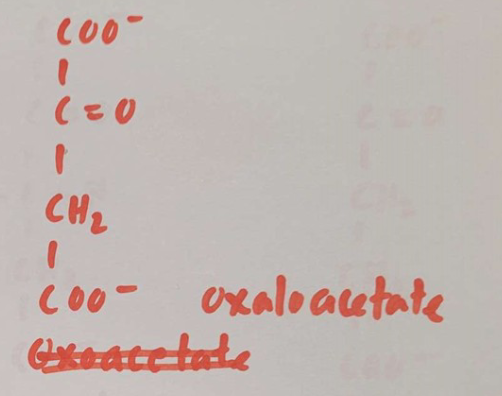 COO⁻
|
C=O
|
CH₂
|
COO⁻ oxaloacetate
Oxoacetate